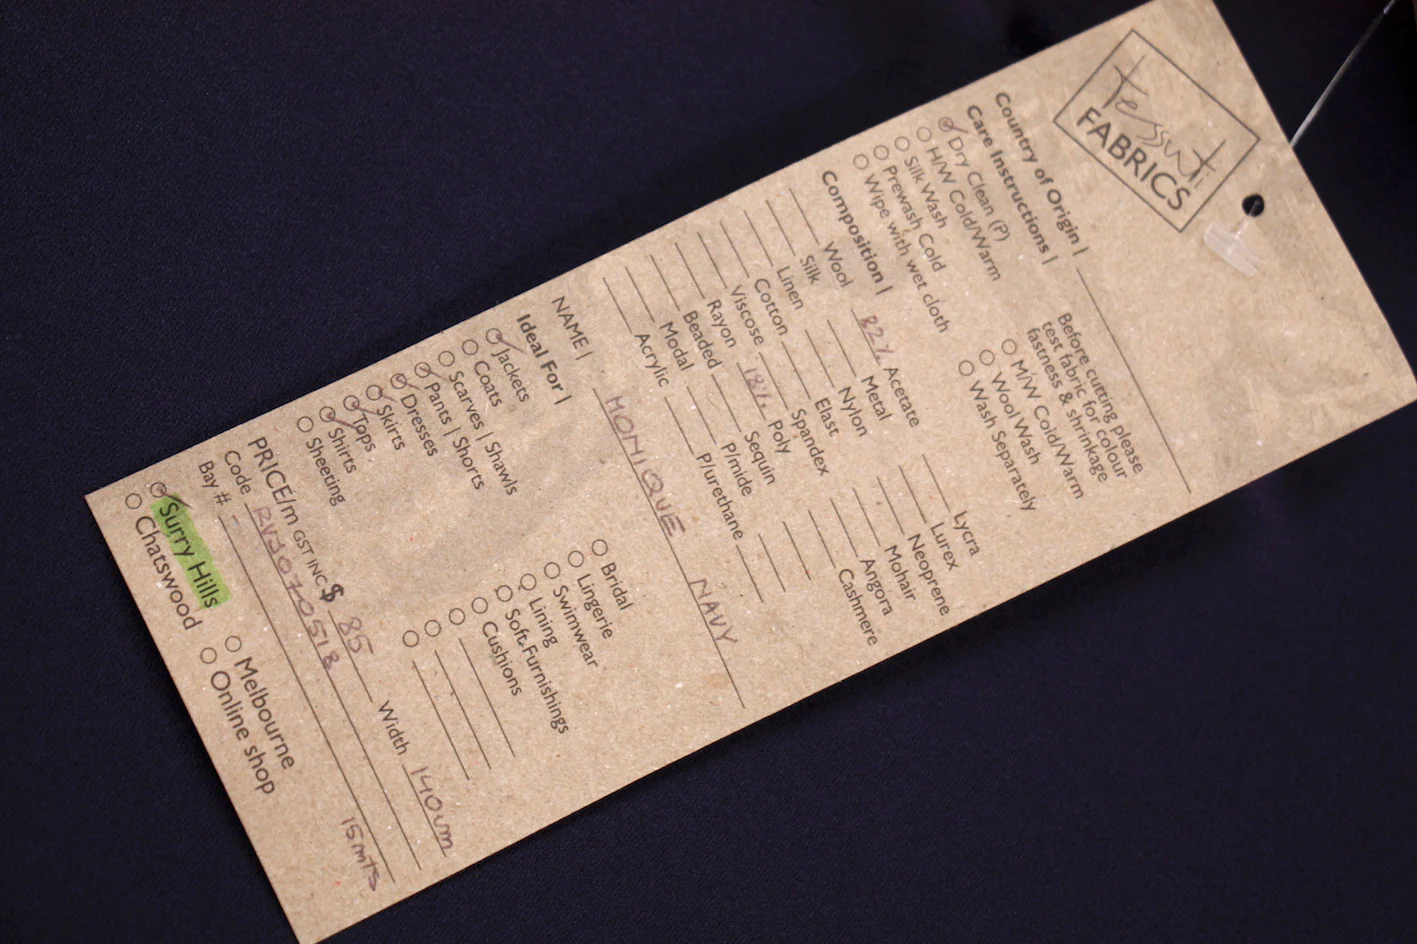 tessuti
FABRICS
Country of Origin |
Care Instructions |
Dry Clean (P)
H/W Cold/Warm
Silk Wash
Prewash Cold
Wipe with wet cloth
Before cutting please
test fabric for colour
fastness & shrinkage
M/W Cold/Warm
Wool Wash
Wash Separately
Composition |
Wool 82% Acetate Lycra
Silk Metal Lurex
Linen Nylon Neoprene
Cotton Elast Mohair
Viscose Spandex Angora
Rayon 18% Poly Cashmere
Beaded Sequin
Modal P/mide
Acrylic P/urethane
NAME | MONIQUE NAVY
Ideal For |
Jackets
Coats
Scarves | Shawls
Pants | Shorts
Dresses
Skirts
Tops
Shirts
Sheeting
Bridal
Lingerie
Swimwear
Lining
Soft Furnishings
Cushions
PRICE/m GST INC $ 85 Width 140cm
Code RVJ070518
Bay # 15mts
Surry Hills Melbourne
Chatswood Online shop